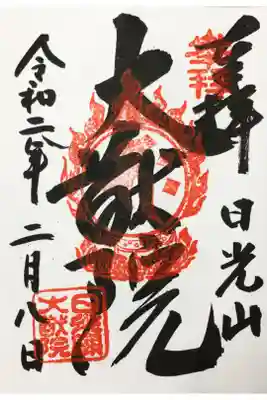 奉拝
日光山
大猷院
令和二年
二月八日
日光山輪王寺
大猷院